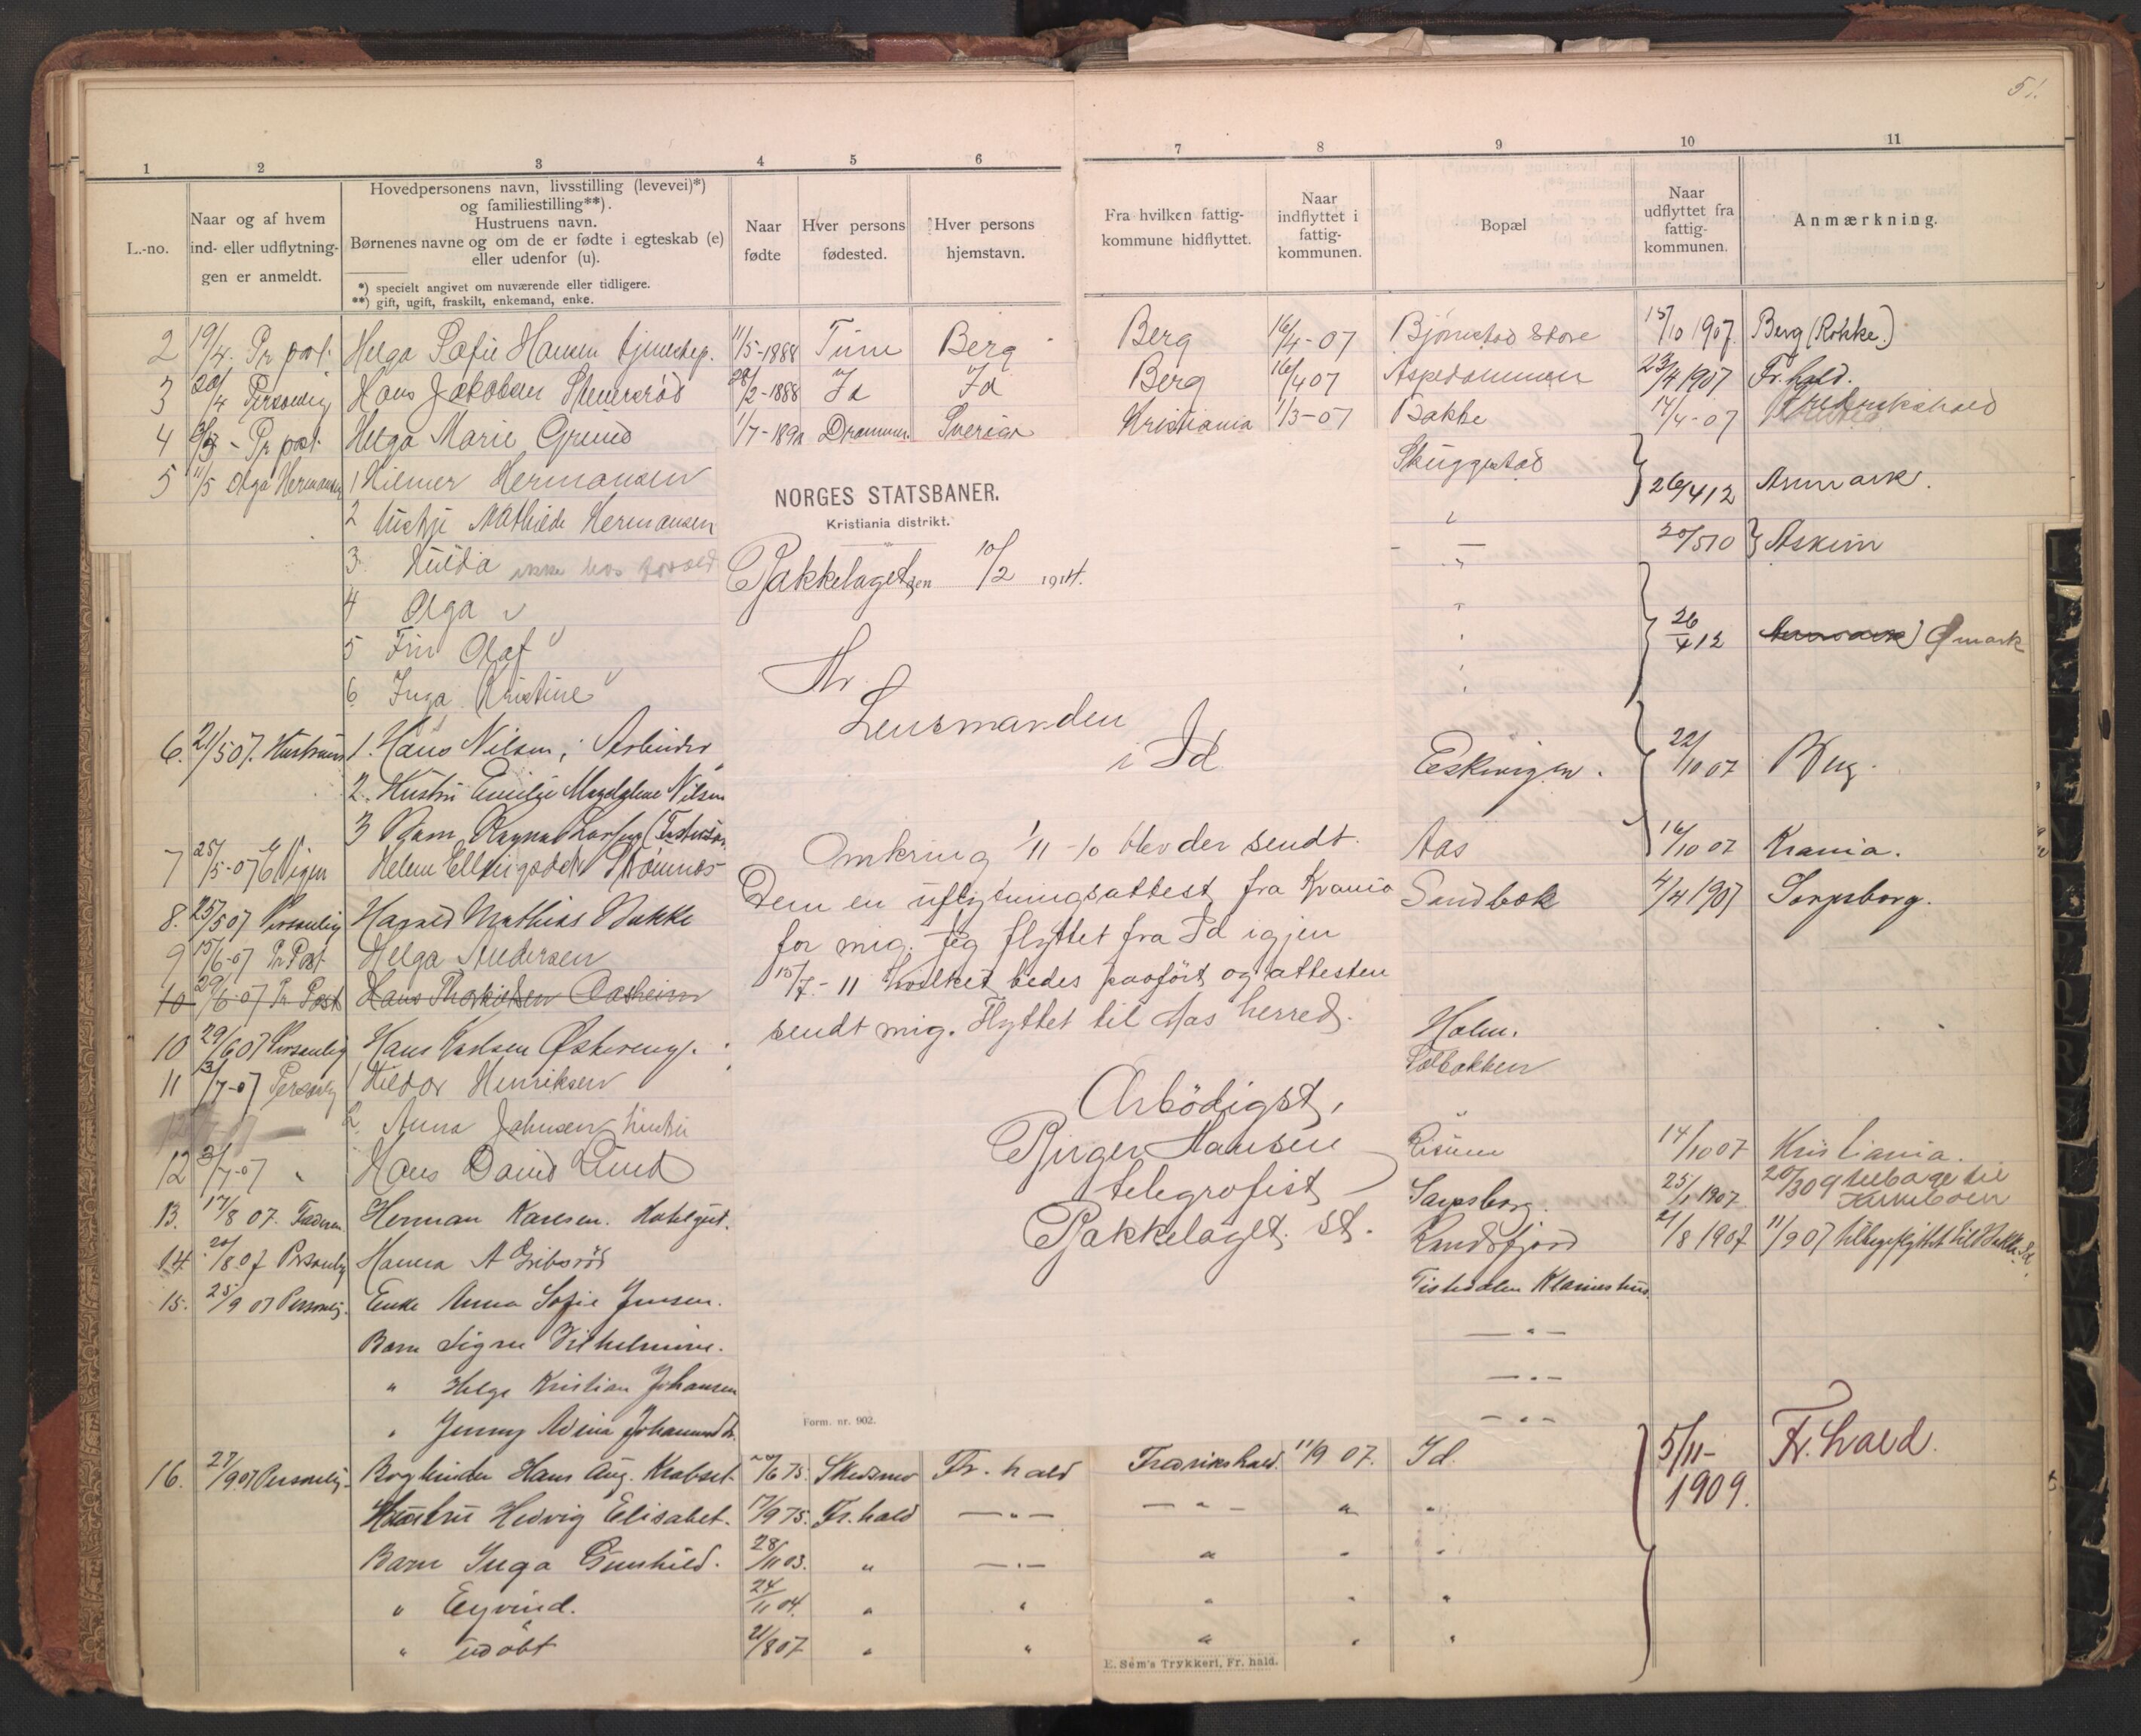 51.
1 2 3 4 5 6 7 8 9 10 11
L.-no.
Naar og af hvem
ind- eller udflytnin-
gen er anmeldt.
Hovedpersonens navn, livsstilling (levevei)*)
og familiestilling**).
Hustruens navn.
Børnenes navne og om de er fødte i egteskab (e)
eller udenfor (u).
*) specielt angivet om nuværende eller tidligere.
**) gift, ugift, fraskilt, enkemand, enke.
Naar
fødte
Hver persons
fødested.
Hver persons
hjemstavn.
Fra hvilken fattig-
kommune hidflyttet.
Naar
indflyttet i
fattig-
kommunen.
Bopæl
Naar
udflyttet fra
fattig-
kommunen.
Anmærkning.
2 19/4. Pr post. Helga Sofie Hansen tjenestep. 11/5-1888 Tune Berg Berg 16/4-07 Bjørnstad Store 15/10 1907 Berg (Rokke.)
3 20/4 Personlig Hans Jakobsen 28/2-1888 Id Id Berg 16/4 07 Aspedammen 23/4 1907 Fr.hald.
4 - Pr post. Helga Marie Grund 1/7-189 Drammen Sverige Kristiania 1/3-07 Bakke 17/4-07 Fredrikshald
5 11/5 Olga Hermansen 1 Hilmer Hermansen Skuggestad 26/4 12 Aremark.
2 Mathilde Hermansen 20/5 10 Askim
3 Hulda ikke hos
4 Olga "
5 Finn Olaf " 26/4 12 Ømark
6 Inga Kristine "
6. 21/5 07. Hustruen 1. Hans Nilsen, Arbeider Eskevigen. 22/10 07 Berg.
2. Hustru Emilie Magdalene Nilsen
3 Barn Ragna
7 25/5-07 Helene Strömnes Aas 16/10 07 Krania.
8. 25/5 07 Personlig Harald Mathias Bakke Sandbæk 4/4 1907 Sarpsborg.
9 15/6-07 Pr Post Helga Andersen
10 29/6-07 Pr Post Hans Aasheim
10 29/6 07 Personlig Hans Karlsen Østereng. Holm.
11 3/7-07 Personlig 1 Hildor Henriksen Solbakken
2. Anna Johnsen, hustru "
12 3/7-07 " Hans David Lund Risum 14/10 07 Kristiania.
13. 17/8 07. Faderen Herman Karlsen. Sarpsborg. 25/1 1907. 20/3 09 tilbage til
14. 20/8 07 Personlig Hanna A Gribsrød Randsfjord 21/8 1907 11/9 07 tilbageflyttet til Bakke Id.
15. 25/9 07 Personlig. Enke Anna Sofie Jensen. Tistedalen
Barn Signe Vilhelmine. — " —
" Helge Kristian Johansen — " —
" Jenny — " —
16. 27/9 07 Personlig. Bogbinder Hans Aug. Krabset. /6 75. Skedsmo Fr.hald Fredrikshald. 11/9 07. Id. 5/11-1909. Fr.hald.
Hustru Hedvig Elisabet. 17/9 75. Fr.hald — " — — " — " "
Barn Inga Gunhild. 28/11 03. " — " — " " "
" Eyvind. 24/11 04. " " " " "
" udøbt 21/8 07 " " " " "
E. Sem's Trykkeri, Fr. hald.
NORGES STATSBANER.
Kristiania distrikt.
Bakkelaget den 10/2 1914.
Hr.
Lensmanden
i Id
Omkring 1/11-10 blev der sendt
Dem en uflytningsattest fra Krania
for mig. Jeg flyttet fra Id igjen
15/7-11 hvilket bedes paaført og attesten
sendt mig. Flyttet til Aas herred.
Ærbödigst,
Birger Hansen
telegrafist
Bakkelaget st.
Form. nr. 902.